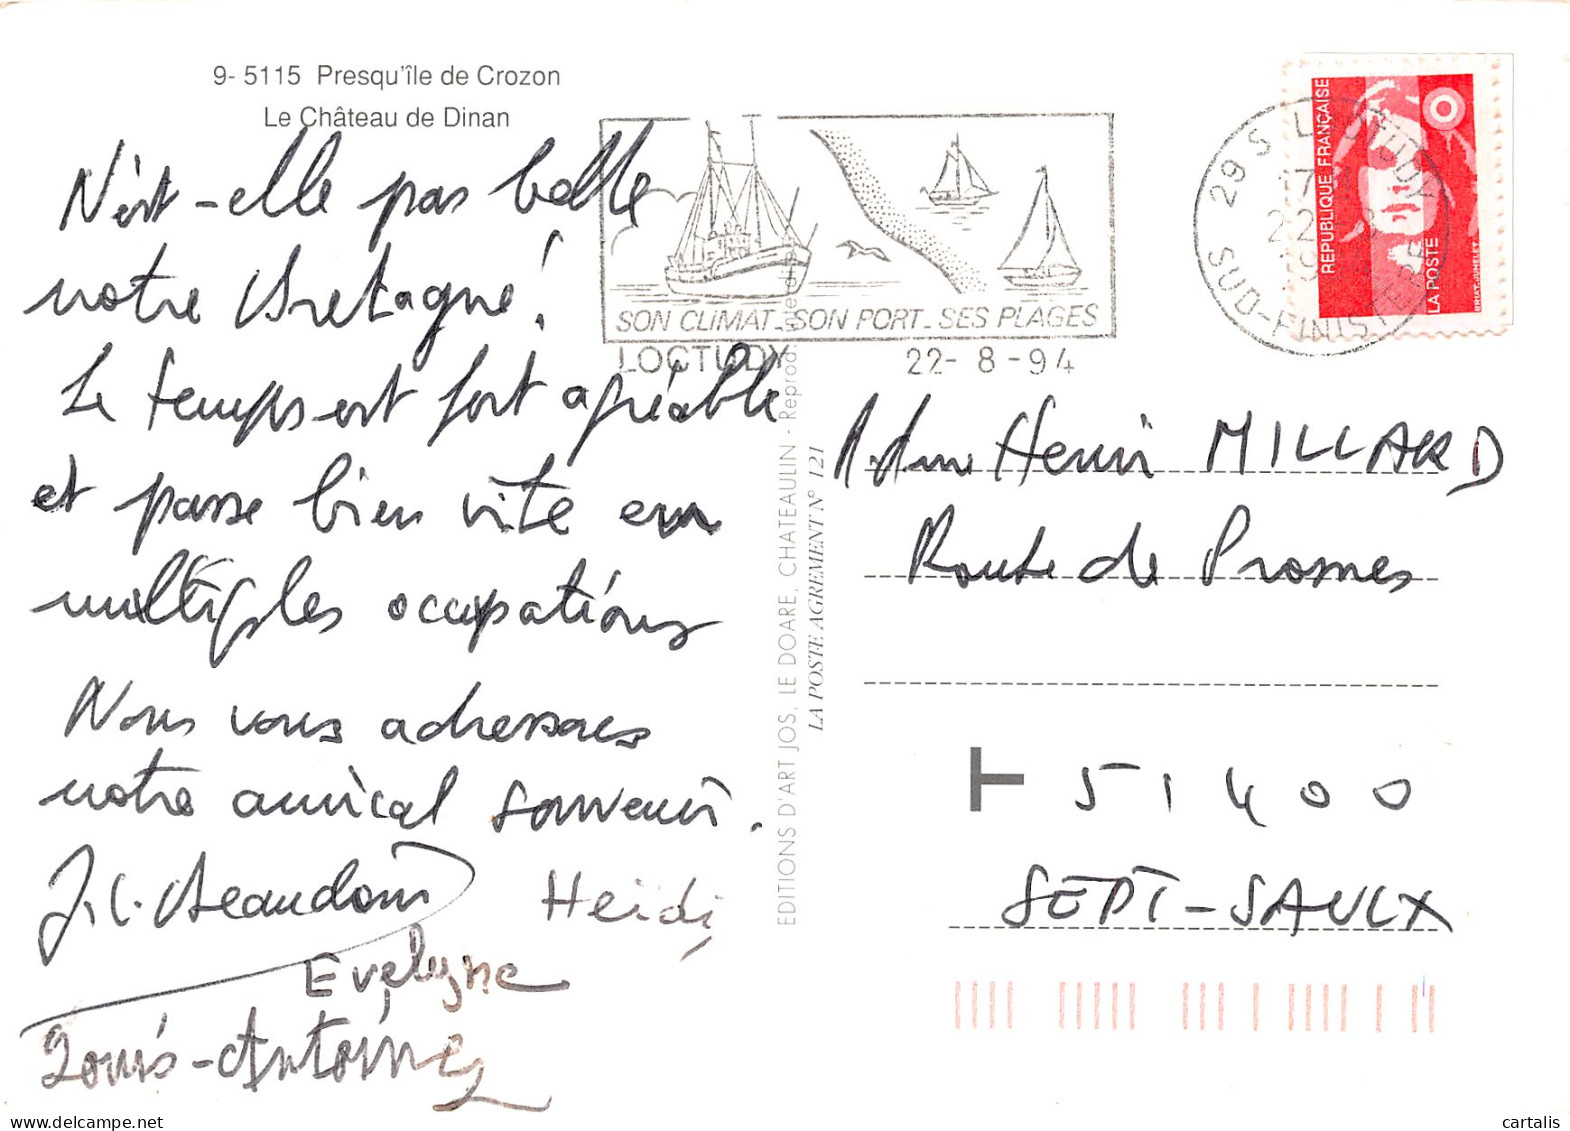 9- 5115 Presqu'île de Crozon
Le Château de Dinan
N'est-elle pas belle
notre Bretagne!
Le temps est fort agréable
et passe bien vite en
multiples occupations
Nous vous adressons
notre amical souvenir.
J.C. Beaudoin
Heidi
Evelyne
Louis-Antoine
SON CLIMAT_SON PORT_SES PLAGES
LOCTUDY 22-8-94
29 S LOCTUDY
22
SUD-FINISTERE
REPUBLIQUE FRANÇAISE
LA POSTE
BRIAT-JUMELET
EDITIONS D'ART JOS, LE DOARE, CHATEAULIN - Reprod. interdite
LA POSTE AGREMENT N° 121
Mme Henri MILLARD
Route de Prosnes
T 51400
SEPT-SAULX
cartalis